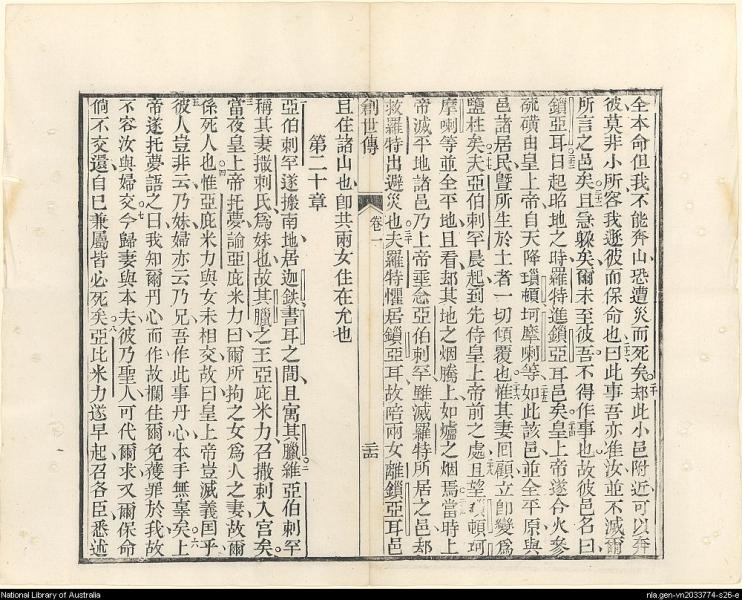 全本命但我不能奔山恐遭災而死矣却此小邑附近可以奔
彼莫非小所容我遯彼而保命也曰此事吾亦准汝並不滅爾
所言之邑矣且急躲矣爾未至彼吾不得作事也故彼邑名曰
鎖亞耳日起昭地之時羅特進鎖亞耳邑矣皇上帝遂合火參
硫磺由皇上帝自天降瑣頓坷摩喇等如此該邑並全平原與
邑諸居民曁所生於土者一切傾覆也惟其妻回顧立卽變爲
鹽柱矣夫亞伯刺罕晨起到先侍皇上帝前之處且望瑣頓坷
摩喇等並全平地且看却其地之烟騰上如爐之烟焉當時上
帝滅平地諸邑乃上帝垂念亞伯刺罕雖滅羅特所居之邑却
救羅特出避災也夫羅特懼居鎖亞耳故陪兩女離鎖亞耳邑
創世傳
卷一
二四
且住諸山也卽共兩女住在冘也
第二十章
亞伯刺罕遂搬南地居迦鉄書耳之間且寓其臘維亞伯刺罕
稱其妻撒刺氏爲妹也故其臘之王亞庇米力召撒刺入宫矣
當夜皇上帝托夢諭亞庇米力曰爾所拘之女爲人之妻故爾
係死人也惟亞庇米力與女未相交故曰皇上帝豈滅義囯乎
彼人豈非云乃妹婦亦云乃兄吾作此事丹心本手無辜矣上
帝遂托夢語之曰我知爾丹心而作故攔住爾免獲罪於我故
不容汝與婦交今歸妻與本夫彼乃聖人可代爾求又爾保命
倘不交還自已兼屬皆必死矣亞庇米力遂早起召各臣悉述
National Library of Australia
nla.gen-vn2033774-s26-e